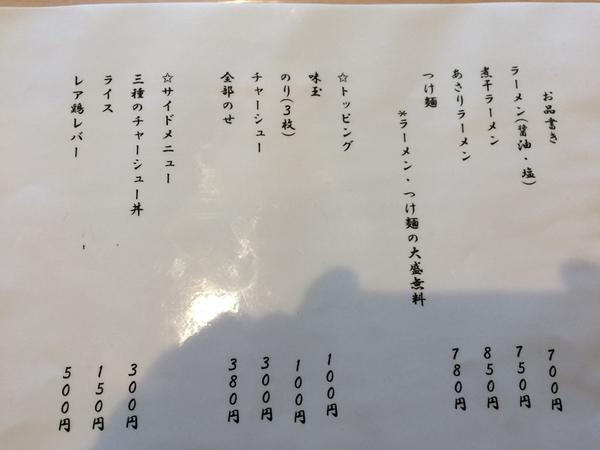 お品書き
ラーメン(醤油・塩) 700円
煮干ラーメン 750円
あさりラーメン 850円
つけ麺 780円
*ラーメン・つけ麺の大盛無料
☆トッピング
味玉 100円
のり(3枚) 100円
チャーシュー 300円
全部のせ 380円
☆サイドメニュー
三種のチャーシュー丼 300円
ライス 150円
レア鶏レバー 500円